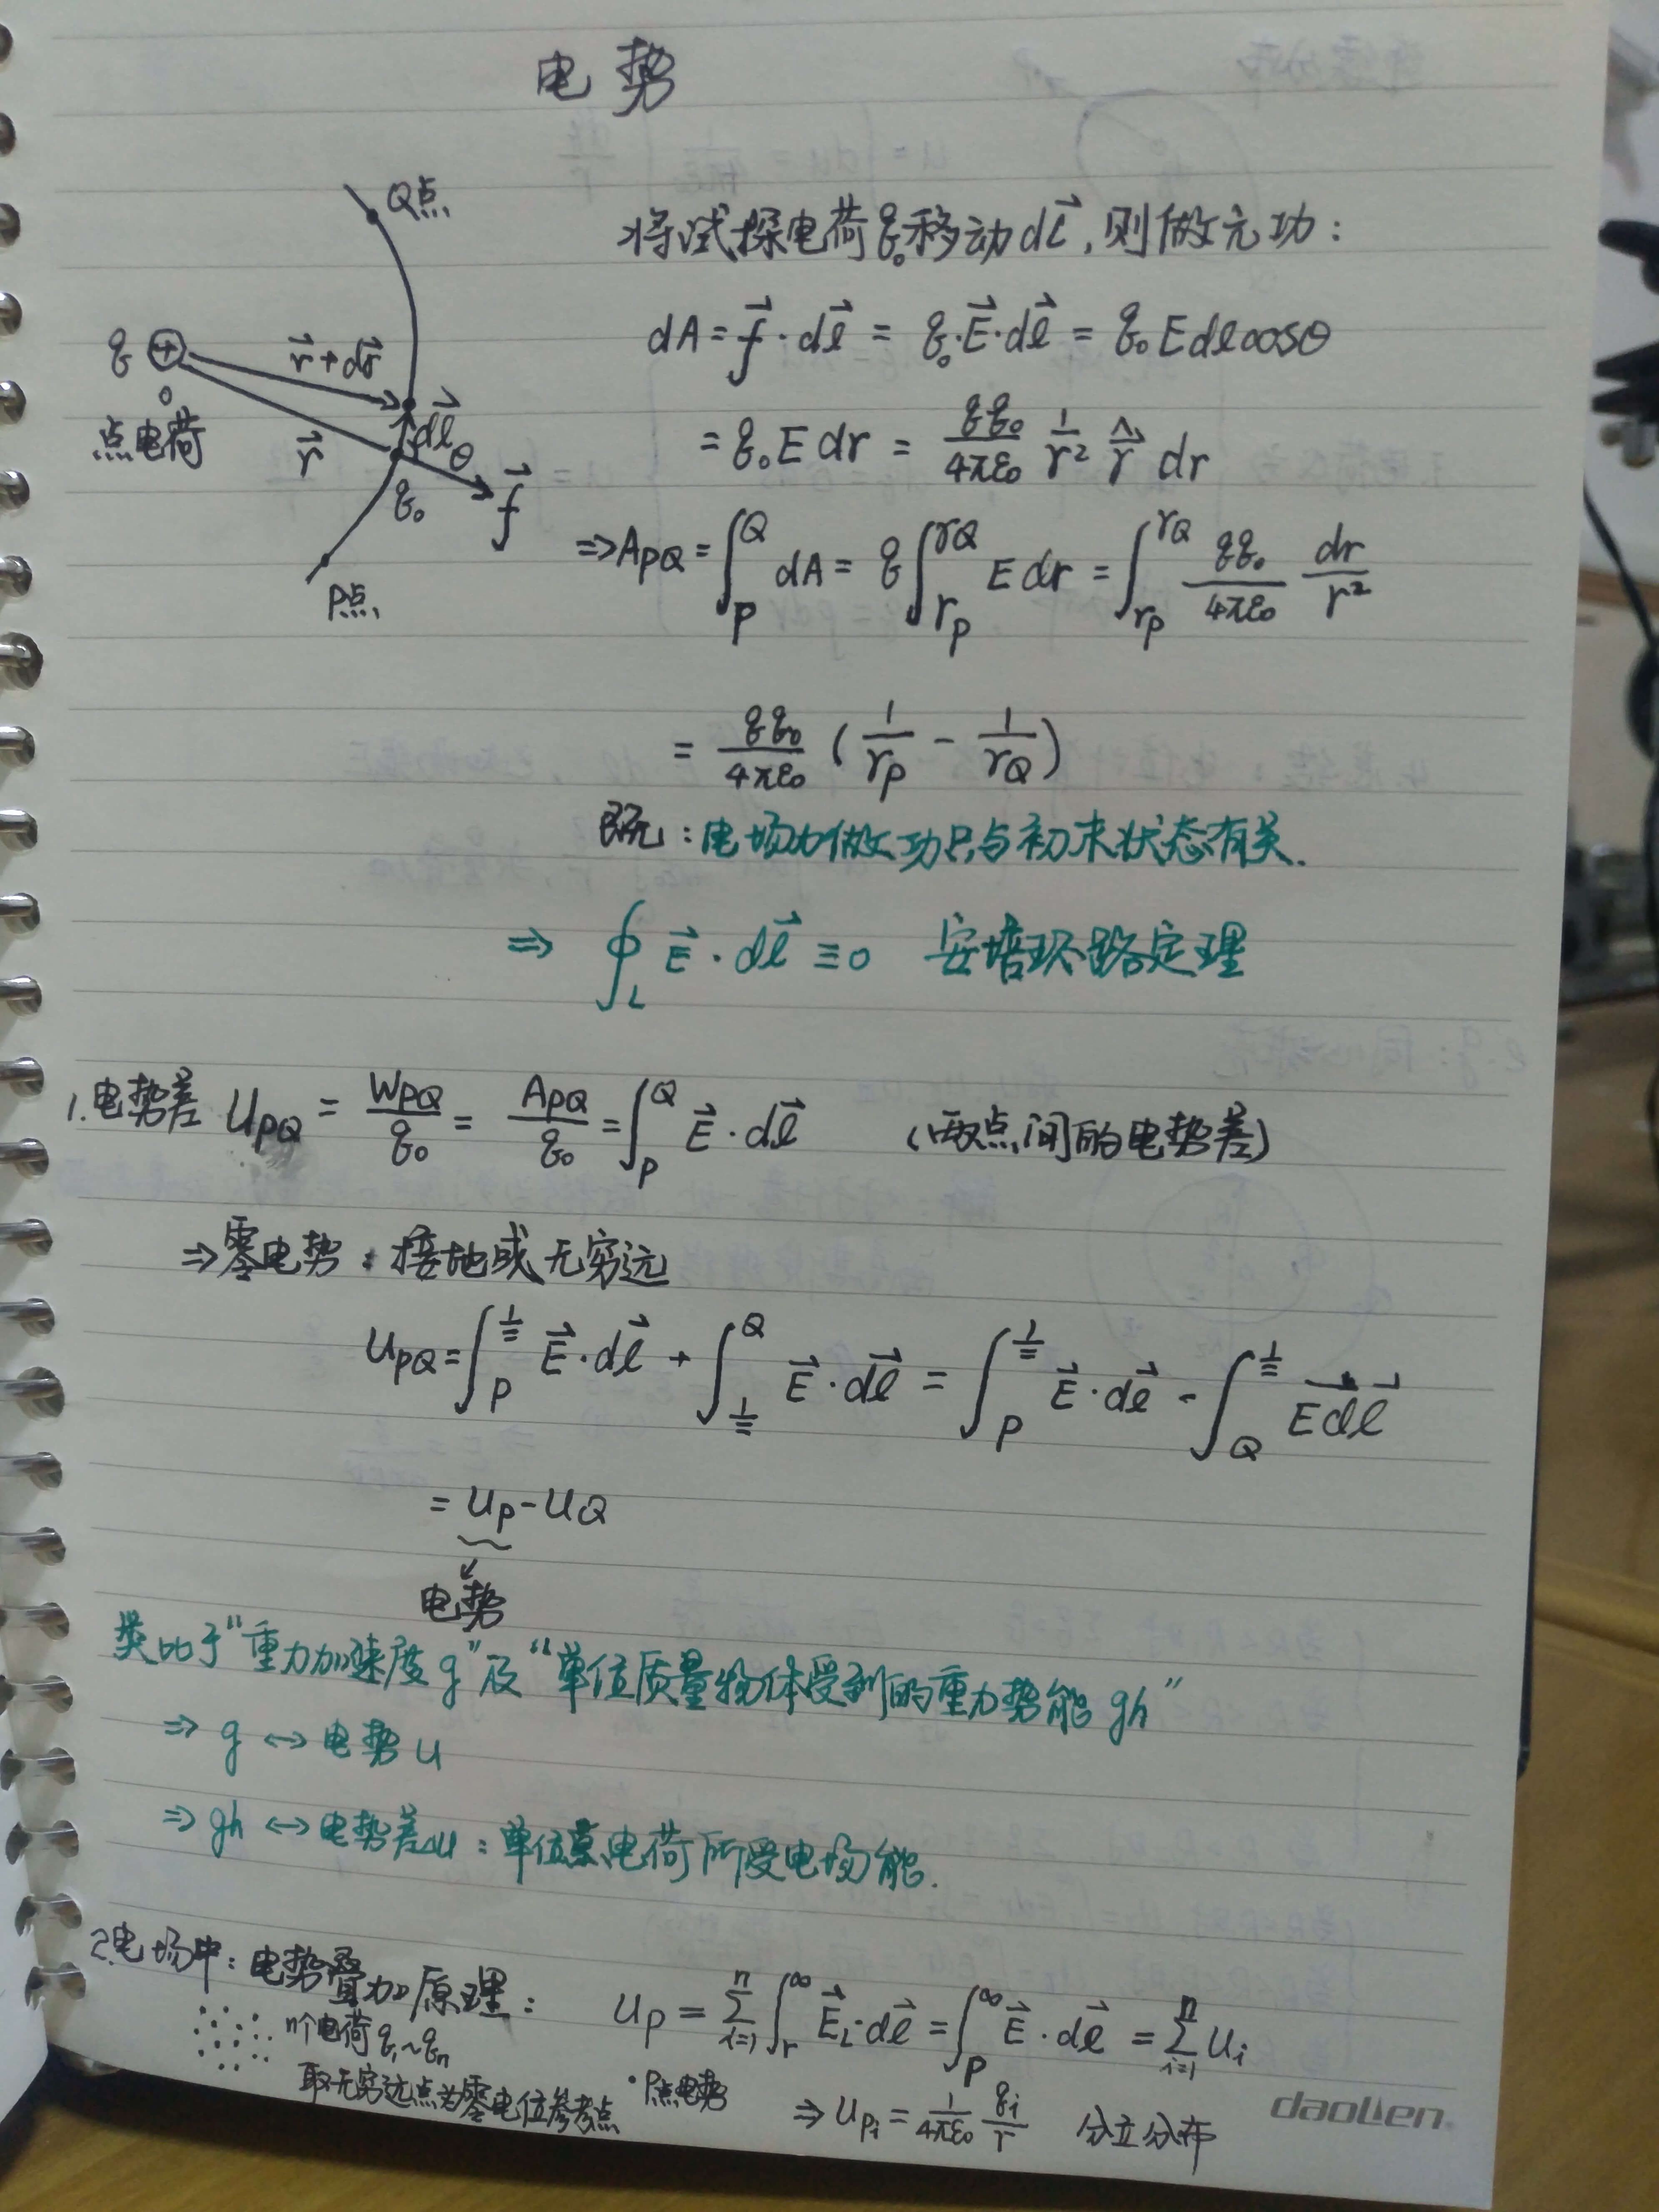 电势
Q点
将试探电荷q₀移动dl⃗,则做元功:
dA = f⃗·dl⃗ = q₀E⃗·dl⃗ = q₀Edlcosθ
q ⊕ r⃗+dr⃗
o
点电荷 r⃗ dl⃗ θ
q₀ f⃗
P点
= q₀Edr = qq₀/4πε₀ 1/r² r̂ dr
⇒A_PQ = ∫_P^Q dA = q∫_{r_P}^{r_Q} Edr = ∫_{r_P}^{r_Q} qq₀/4πε₀ dr/r²
= qq₀/4πε₀ (1/r_P - 1/r_Q)
:电场力做功只与初末状态有关.
⇒ ∮_L E⃗·dl⃗ ≡0 安培环路定理
1.电势差 U_PQ = W_PQ/q₀ = A_PQ/q₀ = ∫_P^Q E⃗·dl⃗ (两点间的电势差)
⇒零电势:接地或无穷远
U_PQ = ∫_P^⏚ E⃗·dl⃗ + ∫_⏚^Q E⃗·dl⃗ = ∫_P^⏚ E⃗·dl⃗ - ∫_Q^⏚ E⃗dl⃗
= U_P-U_Q
↙
电势
类比于“重力加速度g”及“单位质量物体受到的重力势能gh”
⇒ g ↔ 电势U
⇒ gh ↔ 电势差ΔU:单位电荷所受电场能.
2.电场中:电势叠加原理: U_P = ∑_{i=1}^n ∫_r^∞ E⃗_i·dl⃗ = ∫_P^∞ E⃗·dl⃗ = ∑_{i=1}^n U_i
n个电荷q₁~q_n
取无穷远点为零电位参考点 ·P点电势 ⇒ U_Pi = 1/4πε₀ q_i/r 分立分布
daolien